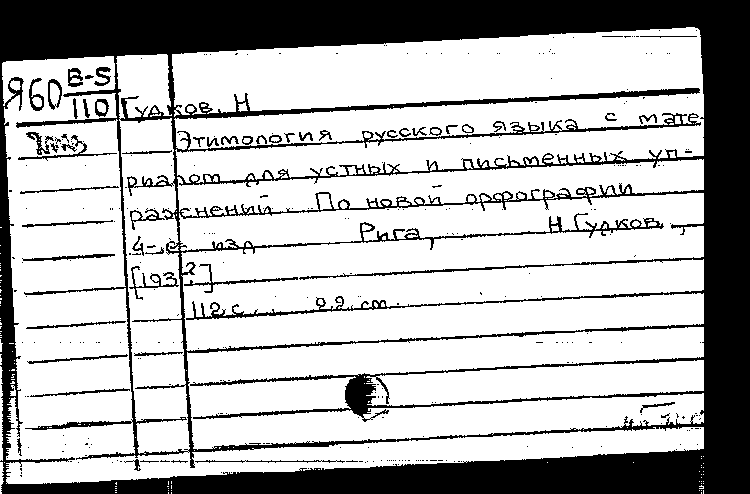 Я60 B-5
110
Гудков, Н
Этимология русского языка с мате-
риалом для устных и письменных уп-
ражнений. По новой орфографии
4-е изд Рига, Н.Гудков,
[193?]
112 с. 22 cm.